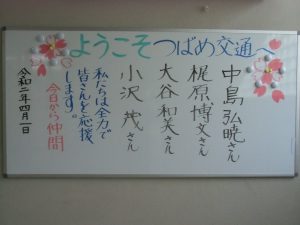 ようこそつばめ交通へ
中島弘暁さん
梶原博文さん
大谷和美さん
小沢茂さん
私たちは全力で
皆さんを応援
します。
今日から仲間
令和二年四月一日